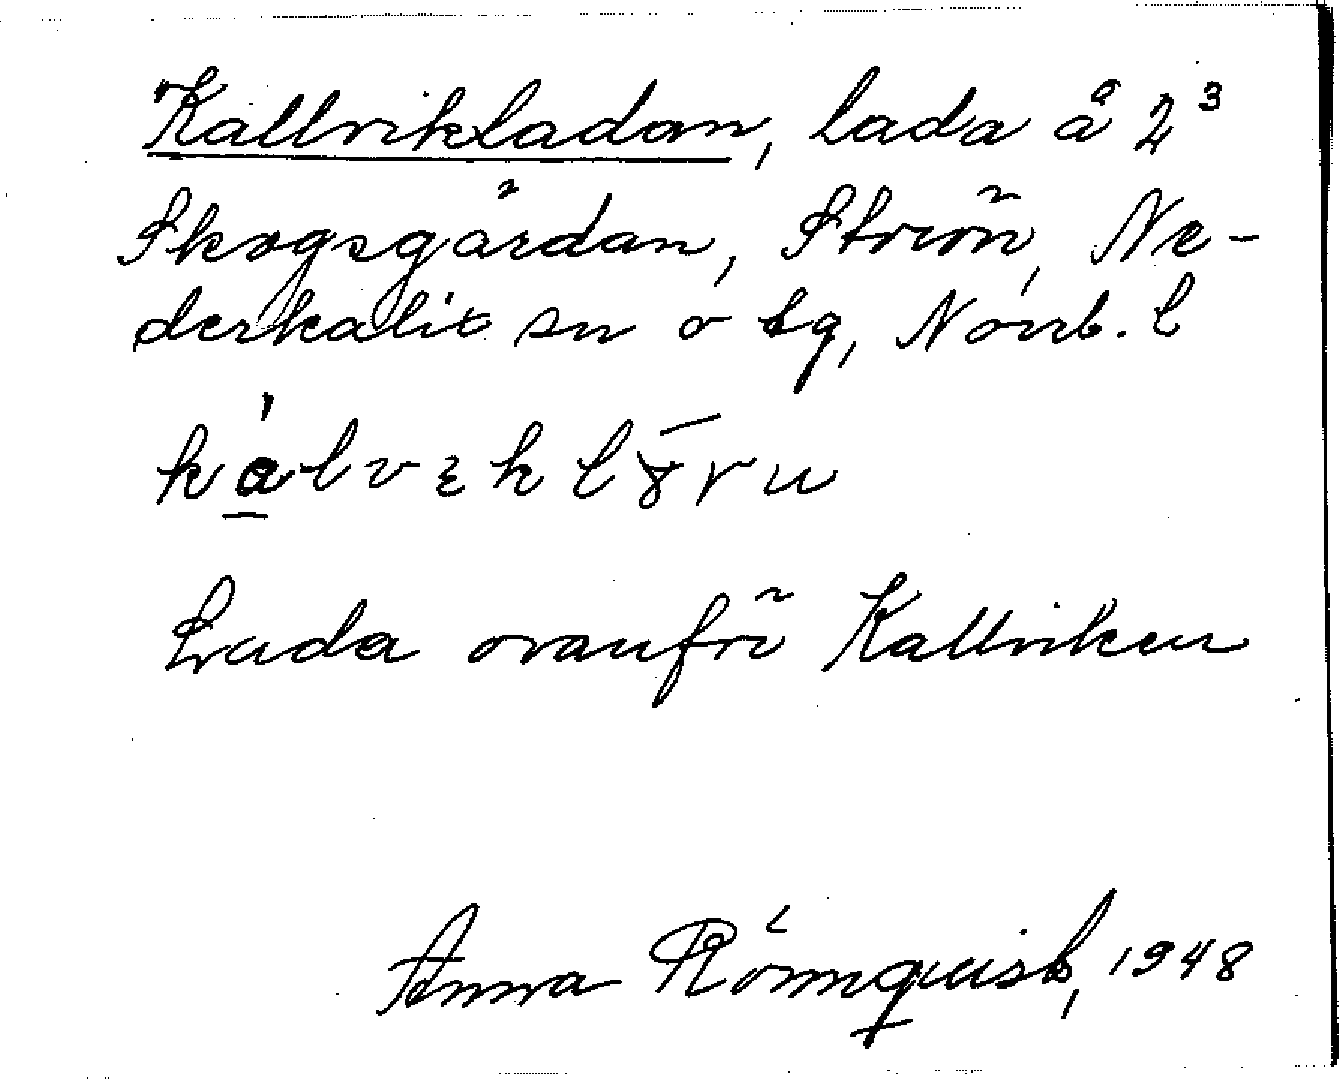 Kallvikladan, lada å 2³
Skogsgårdan, Ströön, Ne-
derkalix sn o tg, Norrb. l
Lada ovanför Kallviken
Anna Rönnquist, 1948